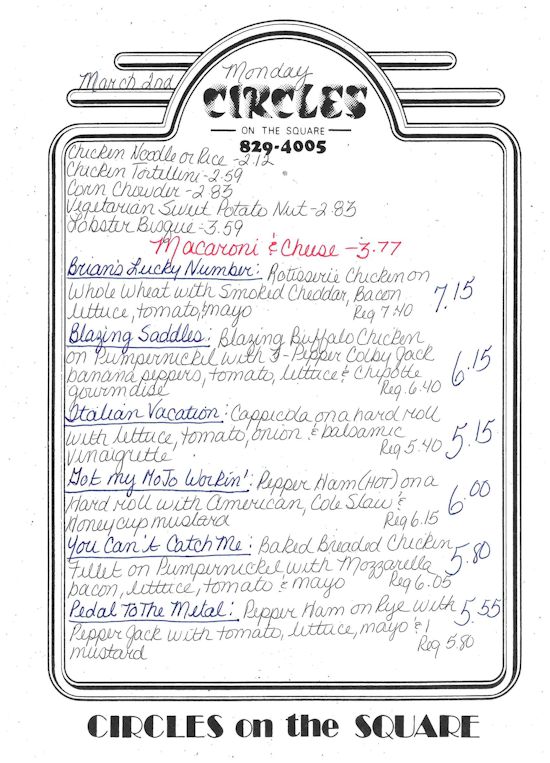 March 2nd Monday
CIRCLES
ON THE SQUARE
829-4005
Chicken Noodle or Rice - 2.12
Chicken Tortellini - 2.59
Corn Chowder - 2.83
Vegetarian Sweet Potato Nut - 2.83
Lobster Bisque - 3.59
Macaroni & Cheese - 3.77
Brian's Lucky Number: Rotisserie Chicken on
Whole Wheat with Smoked Cheddar, Bacon 7.15
lettuce, tomato, & mayo Reg 7.40
Blazing Saddles: Blazing Buffalo Chicken
on Pumpernickel with 3-Pepper Colby Jack
banana peppers, tomato, lettuce & Chipotle 6.15
gourmdise Reg. 6.40
Italian Vacation: Cappicola on a hard roll
with lettuce, tomato, onion & balsamic 5.15
vinaigrette Reg 5.40
Got my MoJo Workin': Pepper Ham (HOT) on a
Hard roll with American, Cole Slaw & 6.00
Honeycup mustard Reg 6.15
You Can't Catch Me: Baked Breaded Chicken
Fillet on Pumpernickel with Mozzarella 5.80
bacon, lettuce, tomato & mayo Reg 6.05
Pedal To The Metal: Pepper Ham on Rye with 5.55
Pepper Jack with tomato, lettuce, mayo &
mustard Reg 5.80
CIRCLES on the SQUARE